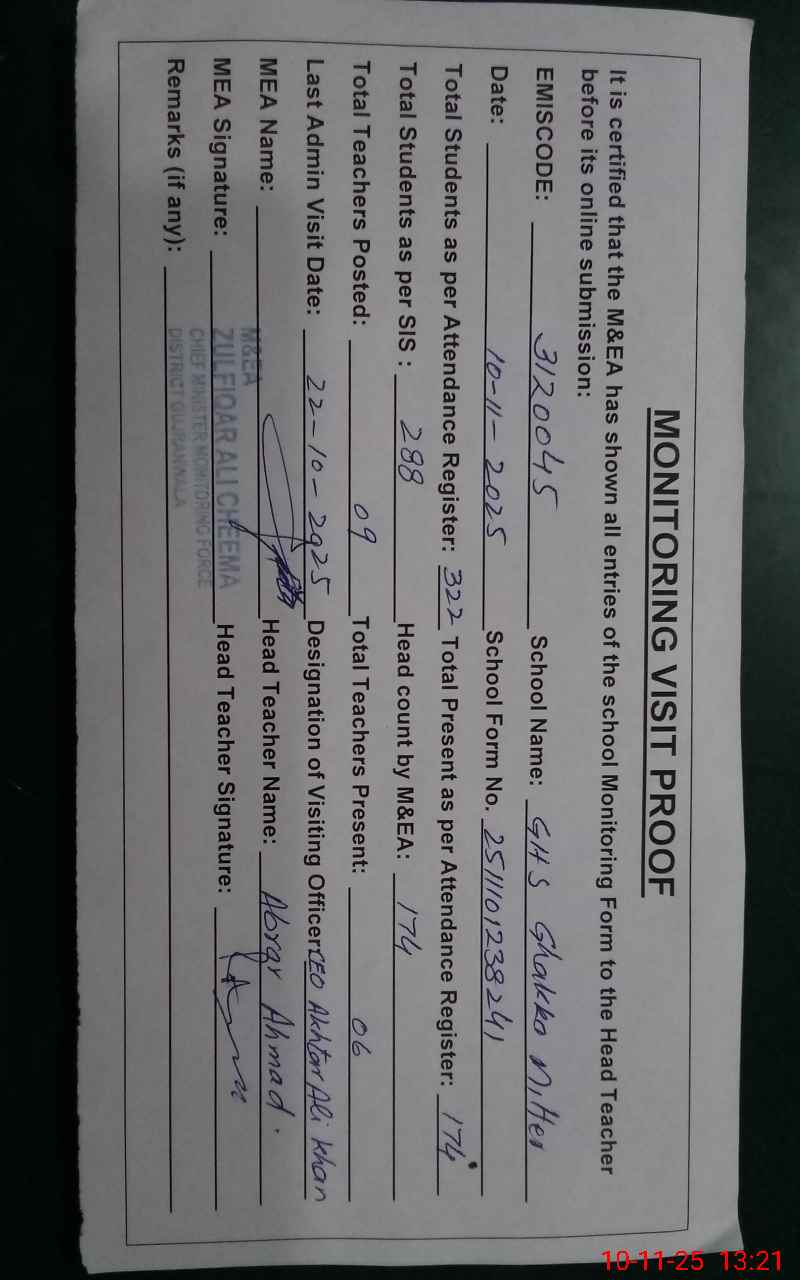 MONITORING VISIT PROOF
It is certified that the M&EA has shown all entries of the school Monitoring Form to the Head Teacher
before its online submission:
EMISCODE: 3120045 School Name: GHS Ghakko Mitter
Date: 10-11-2025 School Form No. 2511101238241
Total Students as per Attendance Register: 322 Total Present as per Attendance Register: 174
Total Students as per SIS : 288 Head count by M&EA: 174
Total Teachers Posted: 09 Total Teachers Present: 06
Last Admin Visit Date: 22-10-2025 Designation of Visiting Officer: CEO Akhtar Ali Khan
MEA Name: Head Teacher Name: Abrar Ahmad.
MEA Signature: Head Teacher Signature:
Remarks (if any):
M&EA
ZULFIQAR ALI CHEEMA
CHIEF MINISTER MONITORING FORCE
DISTRICT GUJRANWALA
10-11-25 13:21